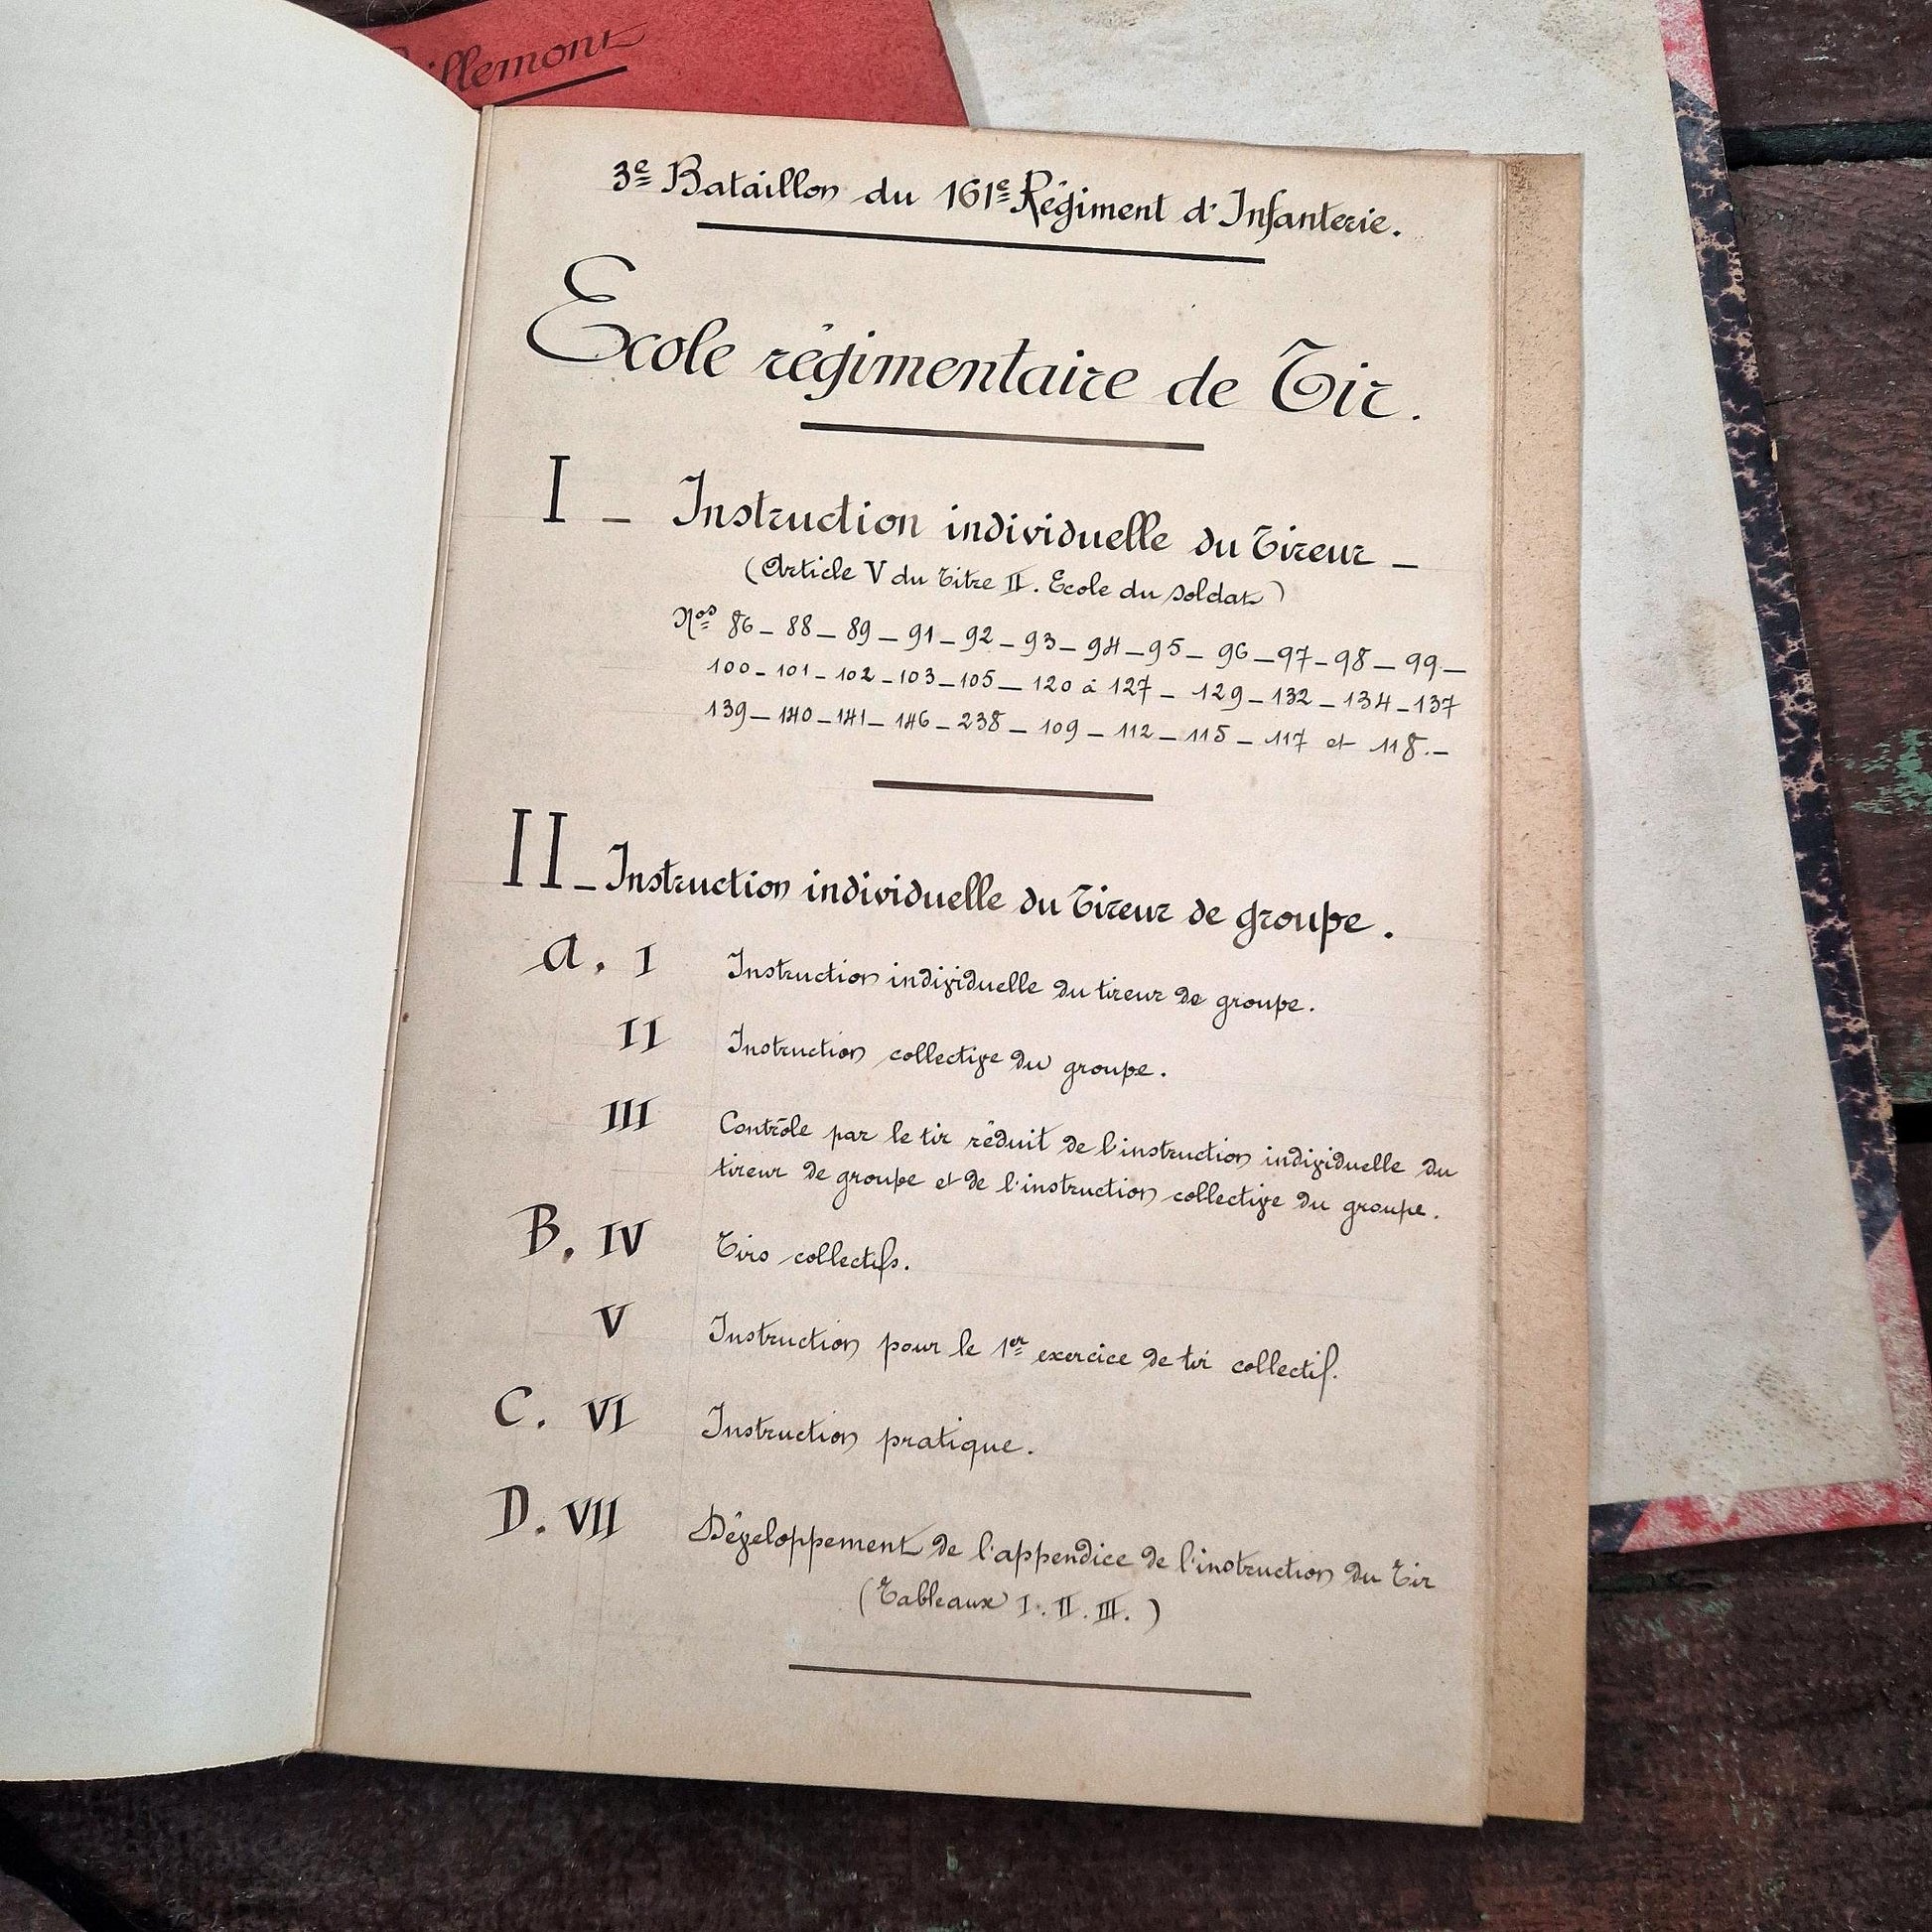 3e Bataillon du 161e Régiment d'Infanterie.
Ecole régimentaire de Tir.
I _ Instruction individuelle du Tireur _
(Article V du Titre II. Ecole du soldat)
Nos 86 _ 88 _ 89 _ 91 _ 92 _ 93 _ 94 _ 95 _ 96 _ 97 _ 98 _ 99 _
100 _ 101 _ 102 _ 103 _ 105 _ 120 à 127 _ 129 _ 132 _ 134 _ 137
139 _ 140 _ 141 _ 146 _ 238 _ 109 _ 112 _ 115 _ 117 et 118. _
II _ Instruction individuelle du Tireur de groupe.
A. I Instruction individuelle du tireur de groupe.
II Instruction collective du groupe.
III Contrôle par le tir réduit de l'instruction individuelle du
tireur de groupe et de l'instruction collective du groupe.
B. IV Tirs collectifs.
V Instruction pour le 1er exercice de tir collectif.
C. VI Instruction pratique.
D. VII Développement de l'appendice de l'instruction du Tir
(Tableaux I. II. III.)